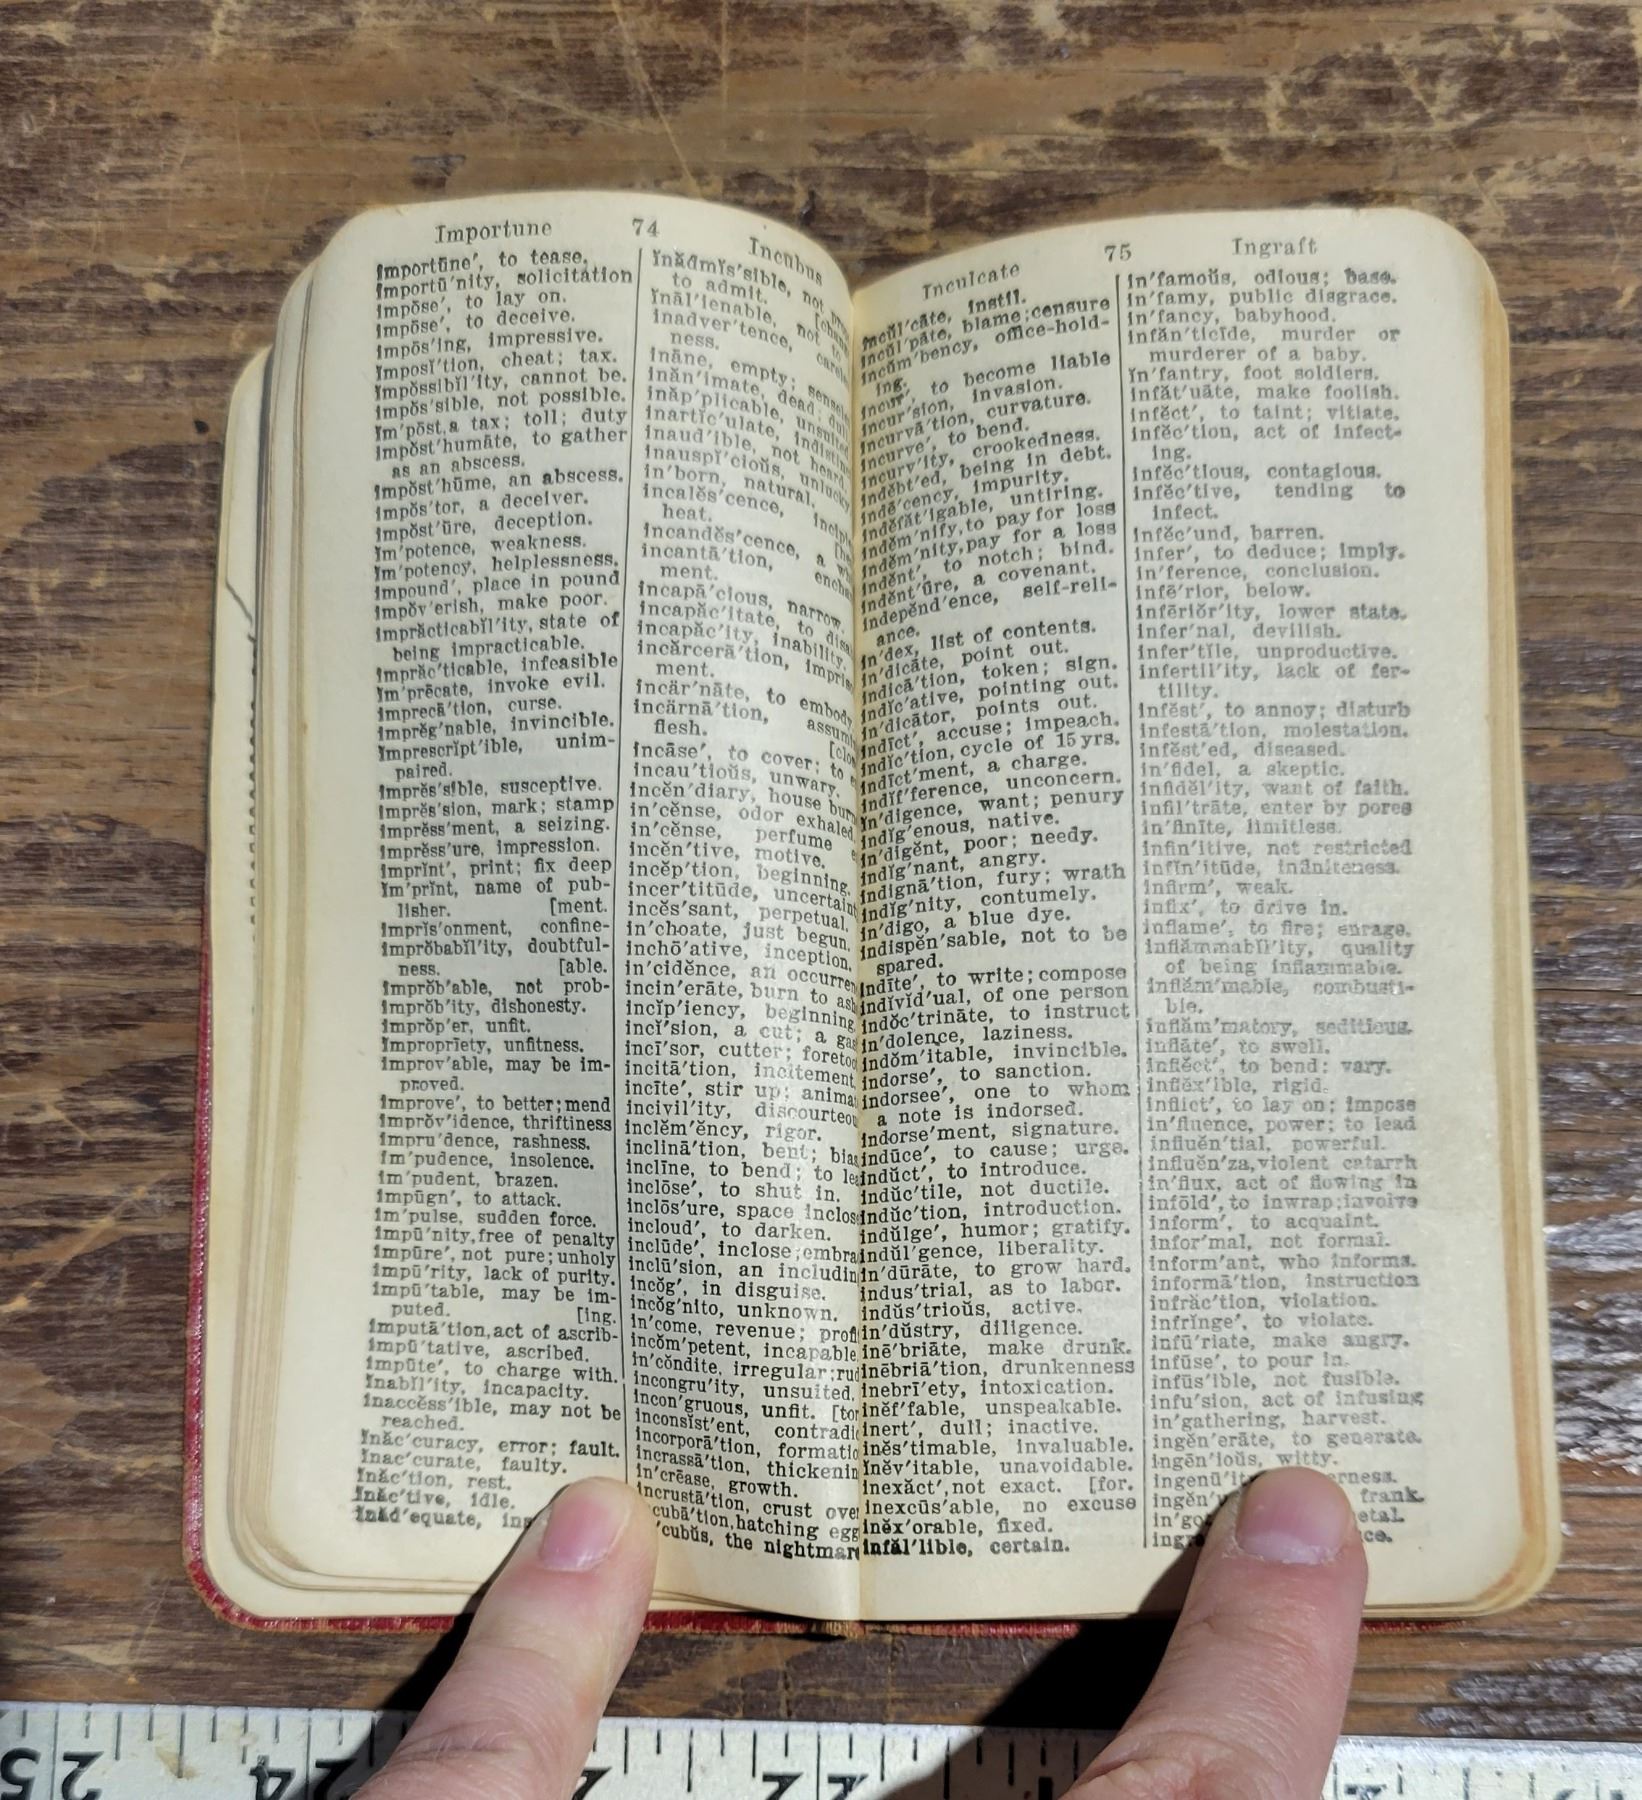 Importune 74 Incubus
importūne', to tease.
importū'nity, solicitation
impōse', to lay on.
impōse', to deceive.
impōs'ing, impressive.
imposĭ'tion, cheat; tax.
impŏssibĭl'ity, cannot be.
impŏs'sible, not possible.
im'pōst, a tax; toll; duty
impŏst'humāte, to gather
as an abscess.
impŏst'hūme, an abscess.
impŏs'tor, a deceiver.
impŏst'ūre, deception.
im'potence, weakness.
im'potency, helplessness.
impound', place in pound
impŏv'erish, make poor.
imprăcticabĭl'ity, state of
being impracticable.
imprăc'ticable, infeasible
im'prēcate, invoke evil.
imprecā'tion, curse.
imprĕg'nable, invincible.
imprescrĭpt'ible, unim-
paired.
imprĕs'sible, susceptive.
imprĕs'sion, mark; stamp
imprĕss'ment, a seizing.
imprĕss'ure, impression.
imprĭnt', print; fix deep
im'prĭnt, name of pub-
lisher. [ment.
imprĭs'onment, confine-
imprŏbabĭl'ity, doubtful-
ness. [able.
imprŏb'able, not prob-
imprŏb'ity, dishonesty.
imprŏp'er, unfit.
impropriety, unfitness.
improv'able, may be im-
proved.
improve', to better; mend
imprŏv'idence, thriftiness
impru'dence, rashness.
im'pudence, insolence.
im'pudent, brazen.
impūgn', to attack.
im'pulse, sudden force.
impū'nity, free of penalty
impūre', not pure; unholy
impū'rity, lack of purity.
impū'table, may be im-
puted. [ing.
imputā'tion, act of ascrib-
impū'tative, ascribed.
impūte', to charge with.
inabĭl'ity, incapacity.
inaccĕss'ible, may not be
reached.
inăc'curacy, error; fault.
inac'curate, faulty.
inăc'tion, rest.
inăc'tive, idle.
inăd'equate,
inădmĭs'sible, not
to admit.
ināl'ienable, not to
inadver'tence,
ness.
ināne, empty;
inăn'imate, dead; dull
inăp'plicable, unsuited
inartĭc'ulate,
inaud'ible, not heard
inauspĭ'cioŭs, unlucky
in'born, natural.
incalĕs'cence,
heat.
incandĕs'cence, a
incantā'tion,
ment.
incapā'cious, narrow.
incapăc'itate, to
incapăc'ity, inability.
incärcerā'tion,
ment.
incär'nāte, to embody
incärnā'tion,
flesh.
incāse', to cover; to
incau'tioŭs, unwary.
incĕn'diary, house
in'cĕnse, odor exhaled
in'cĕnse, perfume
incĕn'tive, motive.
incĕp'tion, beginning.
incer'titūde,
incĕs'sant, perpetual.
in'choate, just begun.
inchō'ative, inception.
in'cidĕnce, an
incin'erāte, burn to
incĭp'iency, beginning
incĭ'sion, a cut; a
incī'sor, cutter;
incitā'tion, incitement
incīte', stir up;
incivil'ity,
inclĕm'ĕncy, rigor.
inclinā'tion, bent;
inclīne, to bend; to
inclōse', to shut in.
inclōs'ure, space
incloud', to darken.
inclūde', inclose;
inclū'sion, an
incŏg', in disguise.
incŏg'nito, unknown.
in'come, revenue;
incŏm'petent, incapable
in'cŏndite, irregular;
incongru'ity, unsuited.
incon'gruous, unfit.
inconsĭst'ent,
incorporā'tion,
incrassā'tion,
in'crēase, growth.
incrustā'tion, crust over
hatching
the nightmare
75
Inculcate Ingraft
incŭl'cāte, instil.
incŭl'pāte, blame; censure
incŭm'bency, office-hold-
ing.
incur', to become liable
incur'sion, invasion.
incurvā'tion, curvature.
incurve', to bend.
incurv'ity, crookedness.
indĕbt'ed, being in debt.
indē'cency, impurity.
indĕfăt'igable, untiring.
indĕm'nify, to pay for loss
indĕm'nity, pay for a loss
indĕnt', to notch; bind.
indĕnt'ūre, a covenant.
indepĕnd'ence, self-reli-
ance.
in'dex, list of contents.
in'dicāte, point out.
indicā'tion, token; sign.
indĭc'ative, pointing out.
in'dicātor, points out.
indīct', accuse; impeach.
indĭc'tion, cycle of 15 yrs.
indīct'ment, a charge.
indĭf'ference, unconcern.
in'digence, want; penury
indĭg'enous, native.
in'digĕnt, poor; needy.
indĭg'nant, angry.
indignā'tion, fury; wrath
indĭg'nity, contumely.
in'digo, a blue dye.
indispĕn'sable, not to be
spared.
indīte', to write; compose
indĭvĭd'ual, of one person
indŏc'trināte, to instruct
in'dolence, laziness.
indŏm'itable, invincible.
indorse', to sanction.
indorsee', one to whom
a note is indorsed.
indorse'ment, signature.
indūce', to cause; urge.
indŭct', to introduce.
indŭc'tile, not ductile.
indŭc'tion, introduction.
indŭlge', humor; gratify.
indŭl'gence, liberality.
in'dūrāte, to grow hard.
indus'trial, as to labor.
indŭs'trioŭs, active.
in'dŭstry, diligence.
inē'briāte, make drunk.
inēbriā'tion, drunkenness
inebrī'ety, intoxication.
inĕf'fable, unspeakable.
inert', dull; inactive.
inĕs'timable, invaluable.
inĕv'itable, unavoidable.
inexăct', not exact. [for.
inexcūs'able, no excuse
inĕx'orable, fixed.
infăl'lible, certain.
in'famoŭs, odious; base.
in'famy, public disgrace.
in'fancy, babyhood.
infăn'ticīde, murder or
murderer of a baby.
in'fantry, foot soldiers.
infăt'uāte, make foolish.
infĕct', to taint; vitiate.
infĕc'tion, act of infect-
ing.
infĕc'tious, contagious.
infĕc'tive, tending to
infect.
infĕc'und, barren.
infer', to deduce; imply.
in'ference, conclusion.
infē'rior, below.
infēriŏr'ity, lower state.
infer'nal, devilish.
infer'tĭle, unproductive.
infertil'ity, lack of fer-
tility.
infĕst', to annoy; disturb
infestā'tion, molestation.
infĕst'ed, diseased.
in'fidel, a skeptic.
infidĕl'ity, want of faith.
infil'trāte, enter by pores
in'finĭte, limitless.
infin'itive, not restricted
infĭn'itūde, infiniteness.
infirm', weak.
infix', to drive in.
inflame', to fire; enrage.
inflămmabĭl'ity, quality
of being inflammable.
inflăm'mable, combusti-
ble.
inflăm'matory, seditious.
inflāte', to swell.
inflĕct', to bend; vary.
inflĕx'ible, rigid.
inflict', to lay on; impose
in'fluence, power; to lead
influĕn'tial, powerful.
influĕn'za, violent catarrh
in'flux, act of flowing in
infōld', to inwrap; involve
inform', to acquaint.
infor'mal, not formal.
inform'ant, who informs.
informā'tion, instruction
infrăc'tion, violation.
infrĭnge', to violate.
infū'riate, make angry.
infūse', to pour in.
infūs'ible, not fusible.
infu'sion, act of infusing
in'gathering, harvest.
ingĕn'erāte, to generate.
ingēn'ioŭs, witty.
frank.
25 24